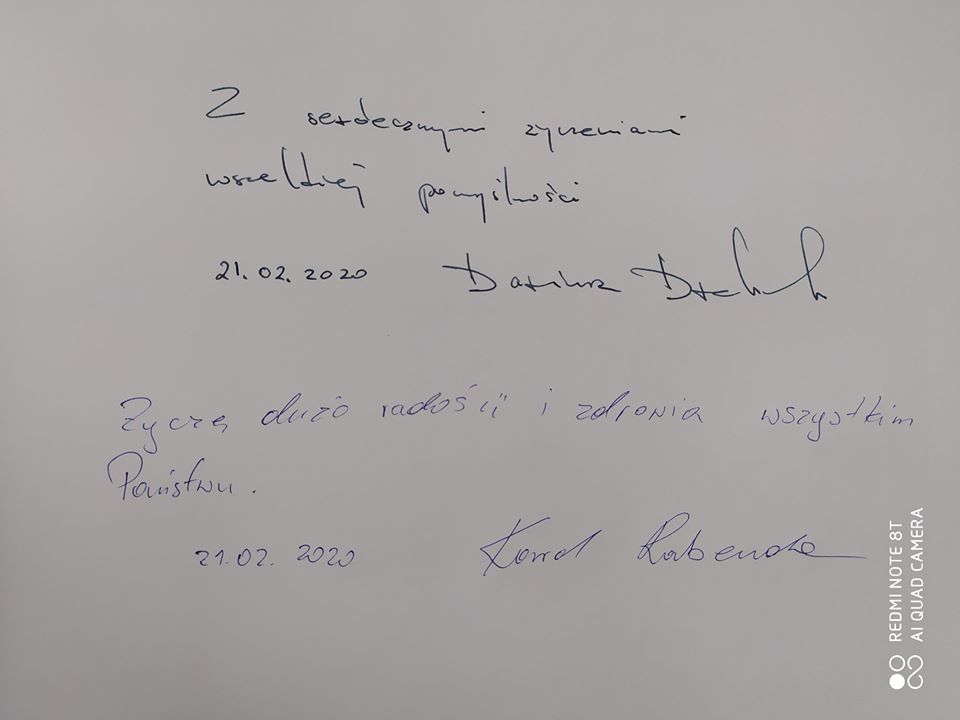 Z serdecznymi życzeniami
wszelkiej pomyślności
21.02.2020 Dariusz
Życzę dużo radości i zdrowia wszystkim
Państwu.
21.02.2020 Karol Rabenda
REDMI NOTE 8T
AI QUAD CAMERA